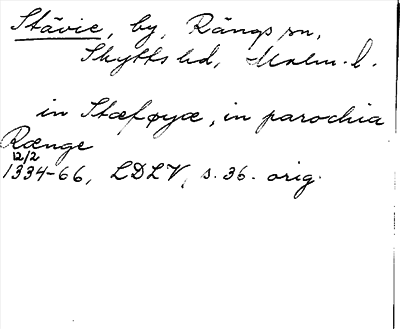 Stävie, by, Rängs sn,
Skytts hd, Malm. l.
in Stæføyæ, in parochia
Rænge
12/2
1334-66, LDLV, s. 36. orig.